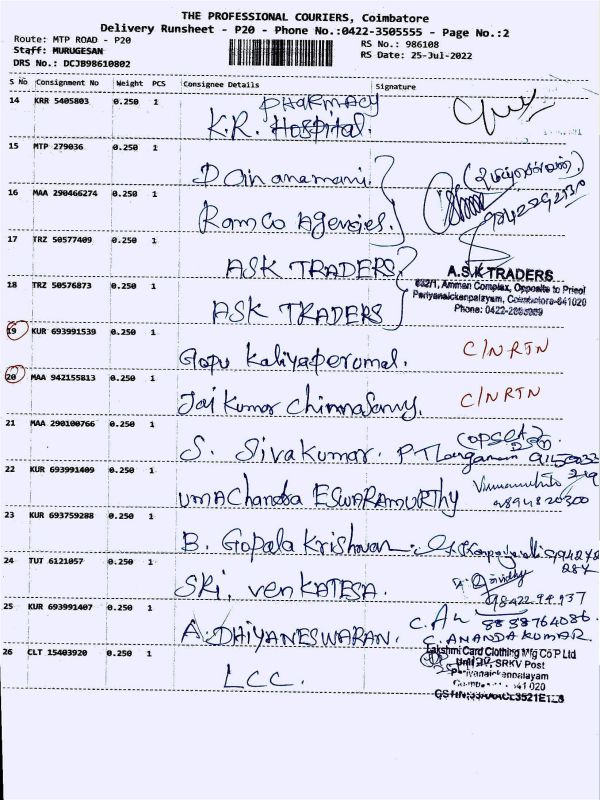 THE PROFESSIONAL COURIERS, Coimbatore
Delivery Runsheet - P20 - Phone No.:0422-3505555 - Page No.:2
Route: MTP ROAD - P20
RS No.: 986108
Staff: MURUGESAN
RS Date: 25-Jul-2022
DRS No.: DCJB98610802
S No Consignment No Weight PCS Consignee Details Signature
14 KRR 5405803 0.250 1
PHARMACY
K.R. Hospital.
15 MTP 279036 0.250 1
Dinanamani.
16 MAA 290466274 0.250 1
9842292130
Ramco Agencies.
17 TRZ 50577409 0.250 1
ASK TRADERS
A.S.K TRADERS
632/1, Amman Complex, Opposite to Pricol
Periyanaickenpalayam, Coimbatore-641020
Phone: 0422-
18 TRZ 50576873 0.250 1
ASK TRADERS
19 KUR 693991539 0.250 1
Gopu Kaliyaperumal. C/N RTN
20 MAA 942155813 0.250 1
Jai Kumar Chinnasamy. C/N RTN
21 MAA 290100766 0.250 1
S. Sivakumar.
22 KUR 693991409 0.250 1
UMA Chandra ESWARAMURTHY
9894820300
23 KUR 693759288 0.250 1
B. Gopala Krishnan.
24 TUT 6121057 0.250 1
SRi. VenKATESA.
25 KUR 693991407 0.250 1
8838764086.
A. DHIYANESWARAN. C. ANANDA KUMAR
26 CLT 15403920 0.250 1
Lakshmi Card Clothing Mfg Co P Ltd
SRKV Post
Periyanaickenpalayam
641 020
LCC.